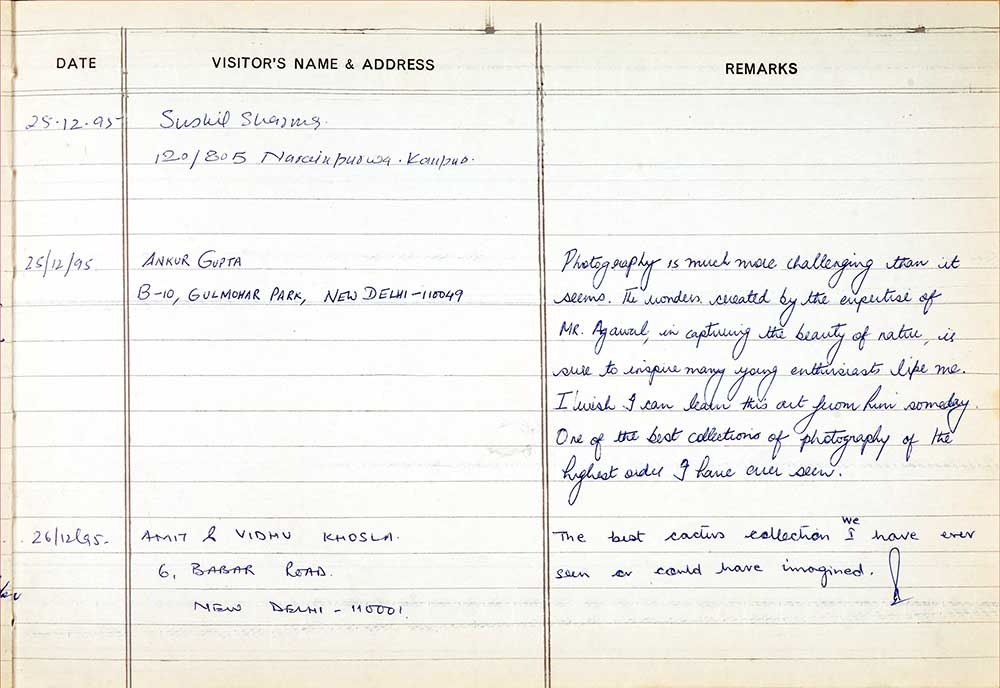 DATE
VISITOR'S NAME & ADDRESS
REMARKS
25.12.95
Sushil Sharma.
120/805 Narainpurwa. Kanpur.
25/12/95
ANKUR GUPTA
B-10, GULMOHAR PARK, NEW DELHI-110049
Photography is much more challenging than it
seems. The wonders created by the expertise of
MR. Agawal, in capturing the beauty of nature, is
sure to inspire many young enthusiasts like me.
I wish I can learn this art from him someday.
One of the best collections of photography of the
highest order I have ever seen.
26/12/95.
AMIT & VIDHU KHOSLA.
6, BABAR ROAD.
NEW DELHI - 110001.
We
The best cactus collection I have ever
seen or could have imagined.